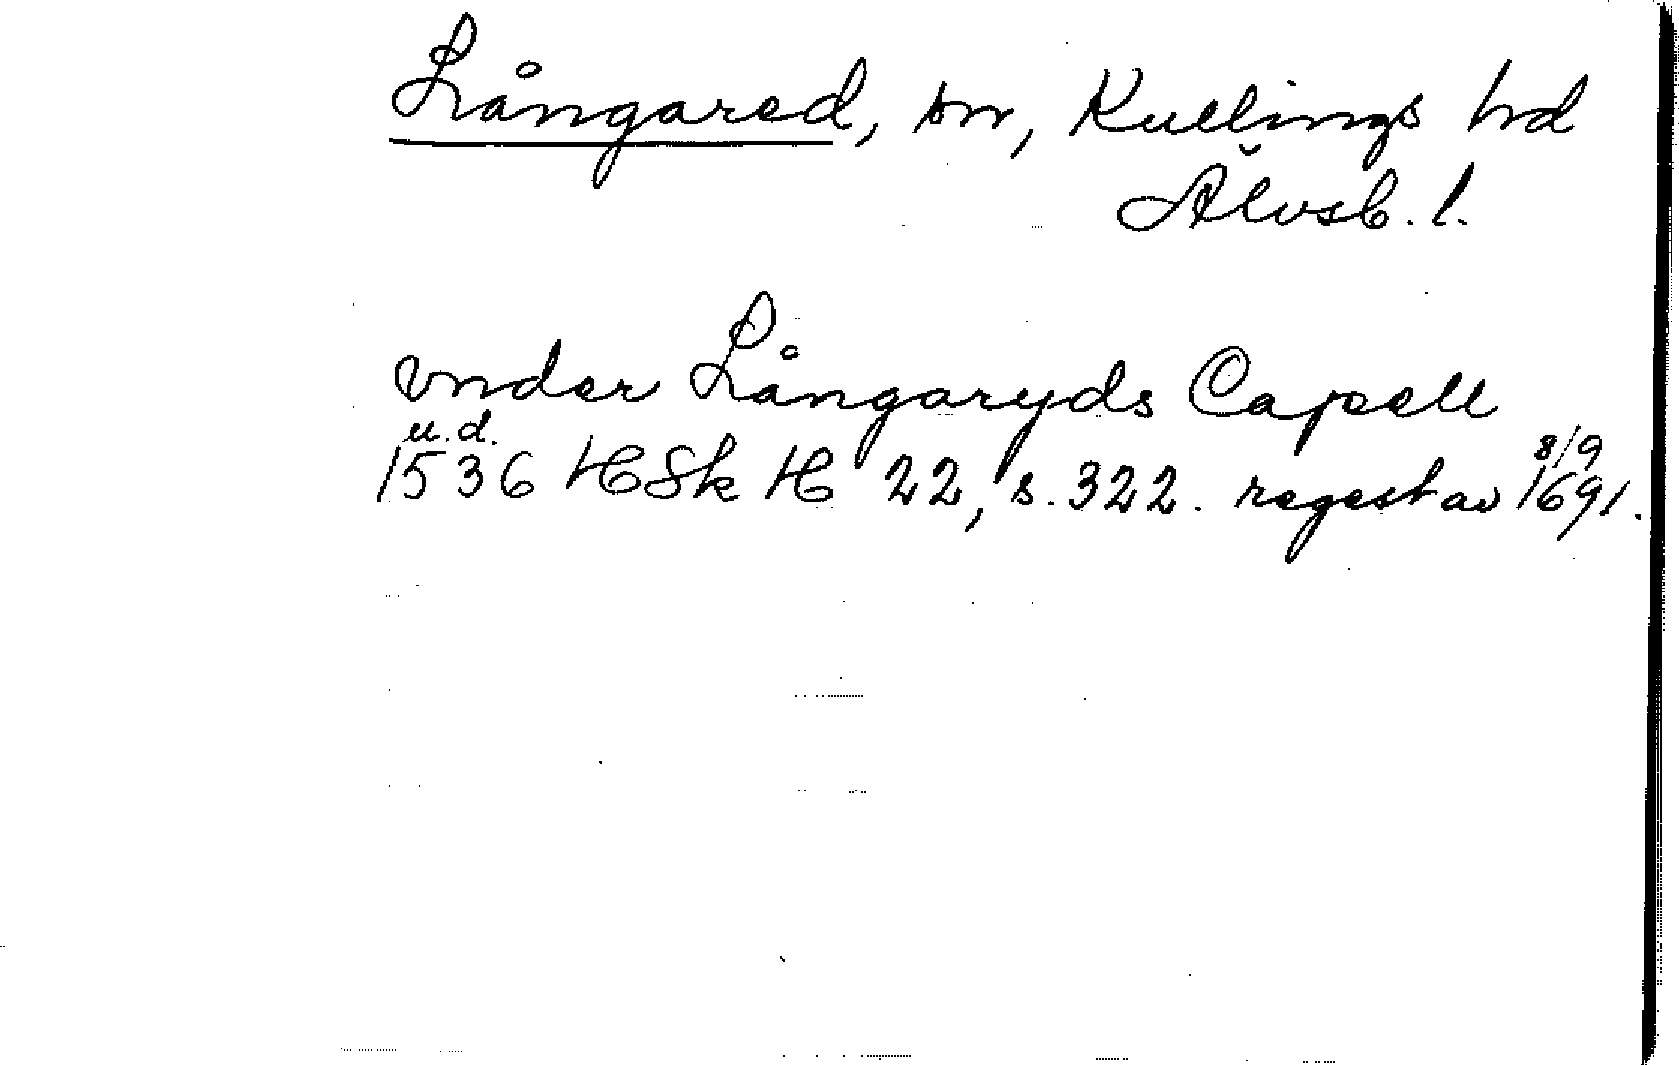 Långared, sn, Kullings hd
Älvsb. l.
vnder Långaryds Capell
u.d. 8/9
1536 HSk H 22, s. 322. regest av 1691.